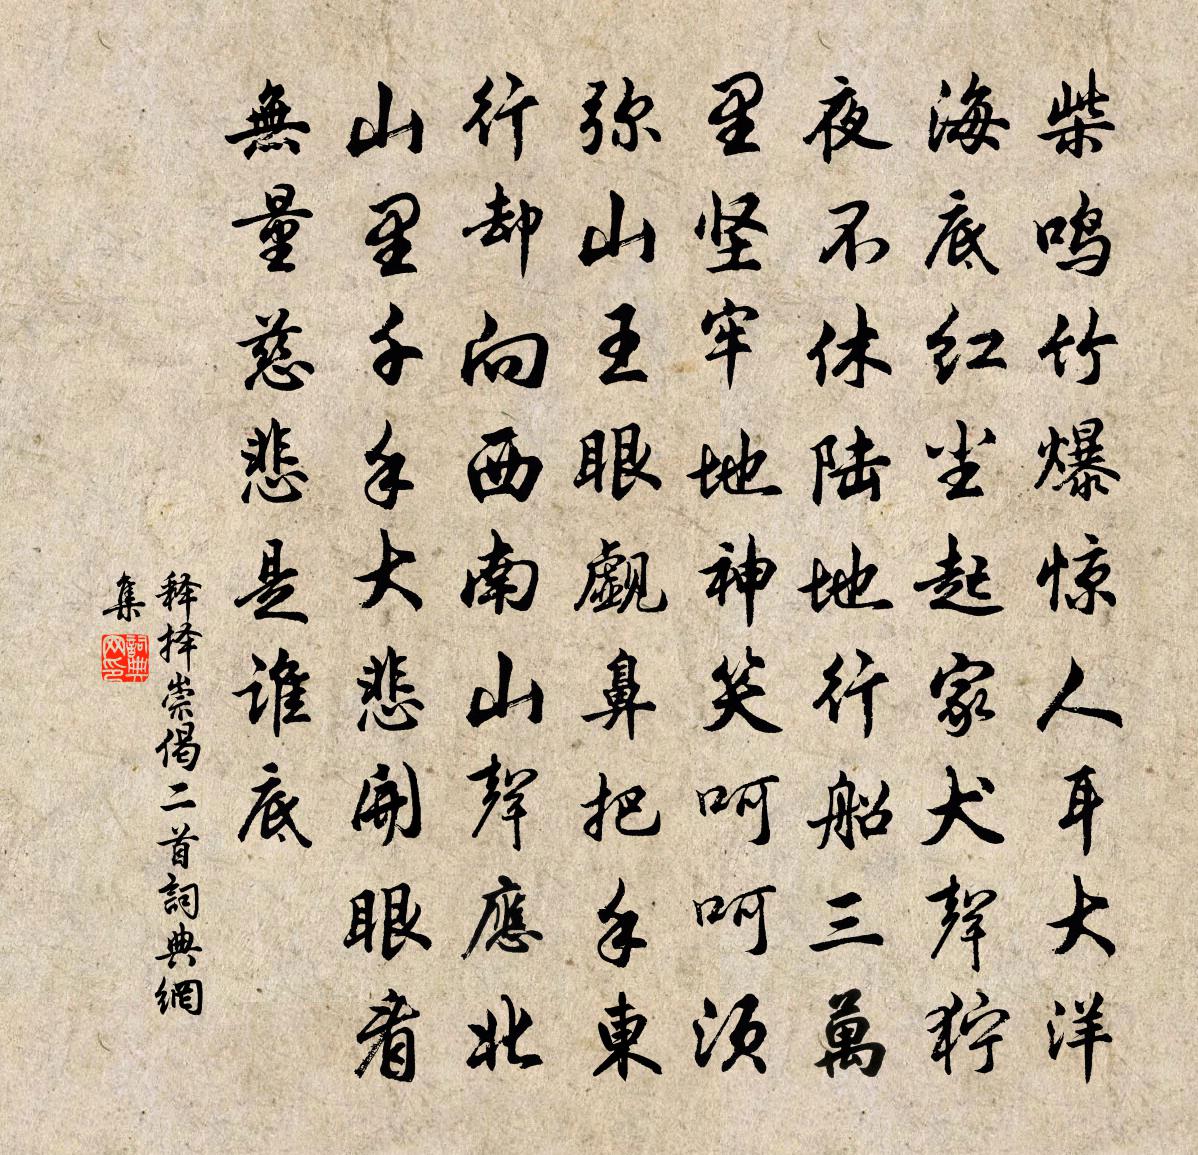 柴鸣竹爆惊人耳大洋
海底红尘起家犬聲狞
夜不休陆地行船三萬
里坚牢地神笑呵呵须
弥山王眼觑鼻把手東
行却向西南山聲應北
山里千手大悲開眼看
無量慈悲是谁底
释择崇偈二首詞典網
集
詞典
网印